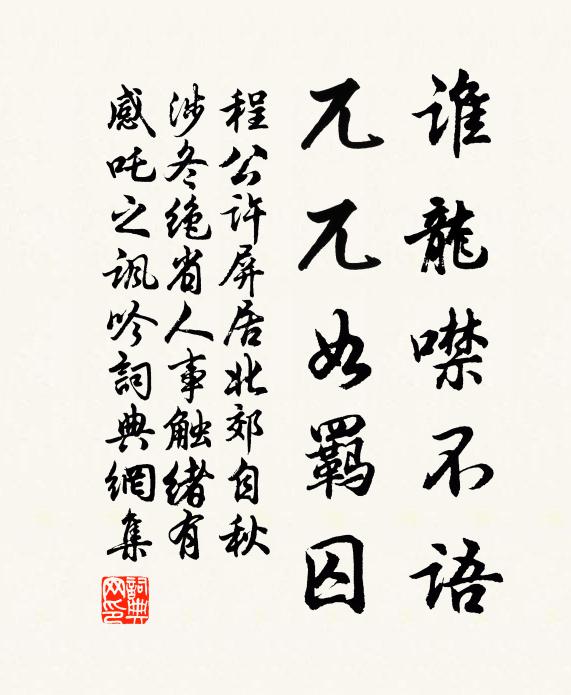 谁龍噤不语
兀兀如羈囚
程公许屏居北郊自秋
涉冬绝省人事触绪有
感吒之讽吟詞典網集
詞典網印